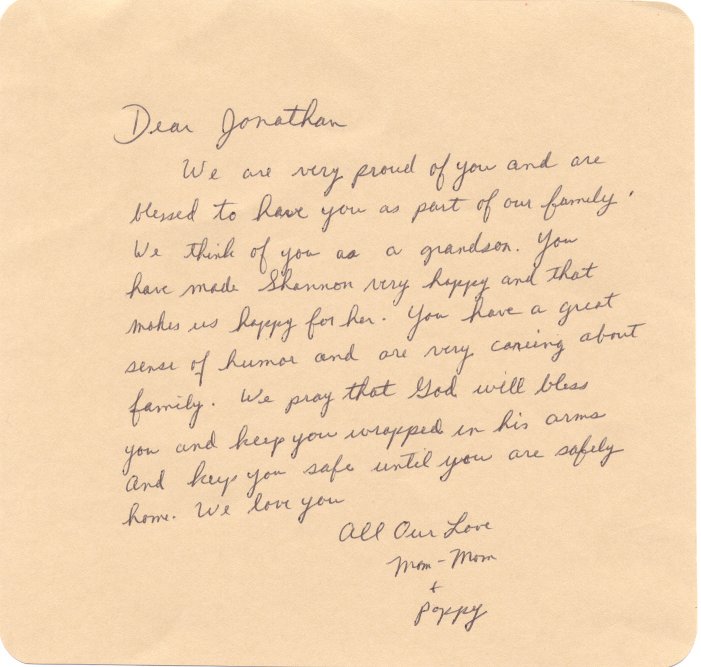 Dear Jonathan
We are very proud of you and are
blessed to have you as part of our family.
We think of you as a grandson. You
have made Shannon very happy and that
makes us happy for her. You have a great
sense of humor and are very caring about
family. We pray that God will bless
you and keep you wrapped in his arms
and keep you safe until you are safely
home. We love you
All Our Love
Mom-Mom
+
Poppy